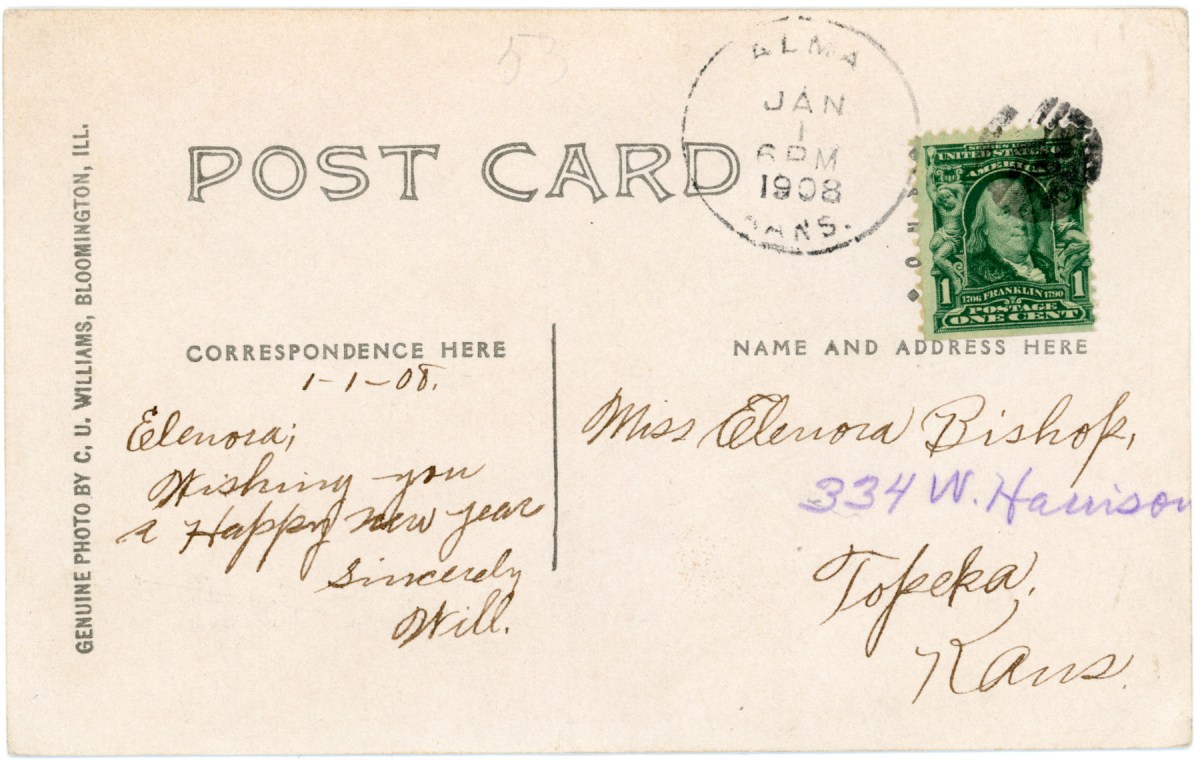 53
POST CARD
ALMA
JAN
1
6 PM
1908
KANS.
UNITED STATES OF
AMERICA
1 1
1706 FRANKLIN 1790
POSTAGE
ONE CENT
GENUINE PHOTO BY C. U. WILLIAMS, BLOOMINGTON, ILL.
CORRESPONDENCE HERE
1-1-08.
Elenora;
Wishing you
a Happy new year
Sincerely
Will.
NAME AND ADDRESS HERE
Miss Elenora Bishop,
334 W. Harrison
Topeka,
Kans.